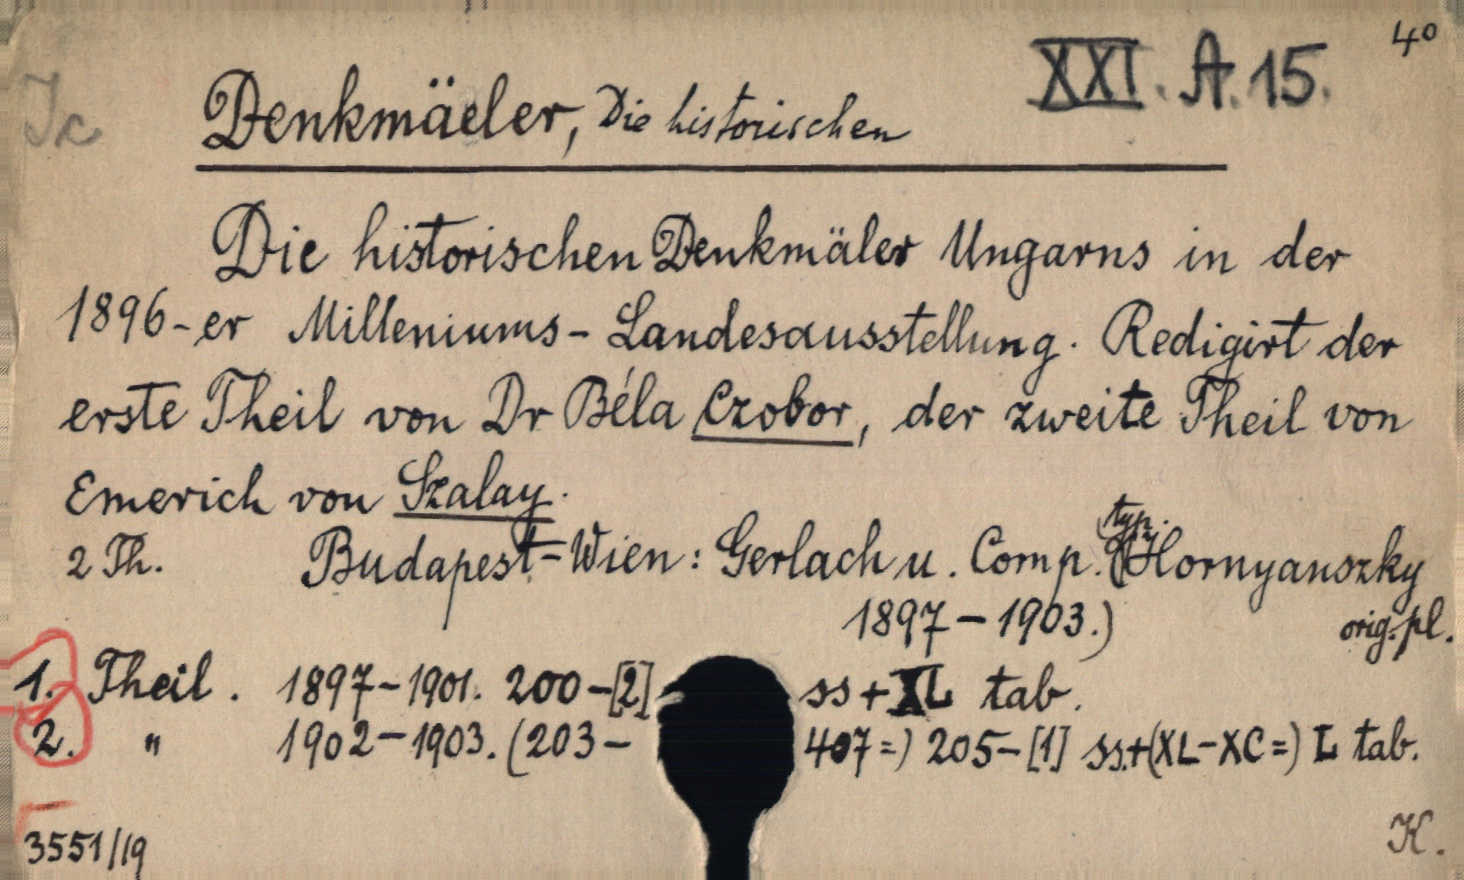 40
XXI. A. 15.
Ic
Denkmäeler, Die historischen
Die historischen Denkmäler Ungarns in der
1896-er Milleniums-Landesausstellung. Redigirt der
erste Theil von Dr Béla Czobor, der zweite Theil von
Emerich von Szalay.
2 Th. Budapest-Wien: Gerlach u. Comp. (typ. Hornyanszky
1897-1903.) orig. pl.
1. Theil. 1897-1901. 200-[2] ss + XL tab.
2. " 1902-1903. (203- 407=) 205-[1] ss.+(XL-XC=) L tab.
3551/19 K.